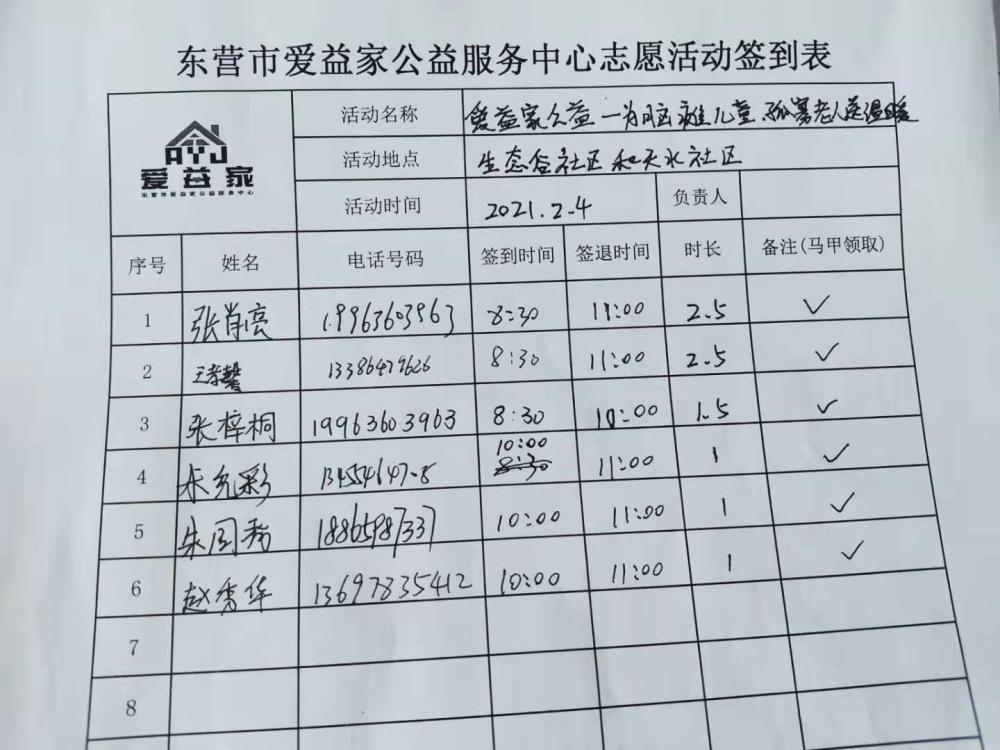 东营市爱益家公益服务中心志愿活动签到表
AYJ
爱益家
东营市爱益家公益服务中心
活动名称 爱益家公益一为脑瘫儿童、孤寡老人送温暖
活动地点 生态谷社区和天水社区
活动时间 2021.2.4 负责人
序号 姓名 电话号码 签到时间 签退时间 时长 备注(马甲领取)
1 张肖亮 19963603963 8:30 11:00 2.5 ✓
2 13386479626 8:30 11:00 2.5 ✓
3 张梓桐 19963603963 8:30 10:00 1.5 ✓
4 朱克彩 10:00 8:30 11:00 1 ✓
5 18865987337 10:00 11:00 1 ✓
6 赵秀华 13697835412 10:00 11:00 1 ✓
7
8